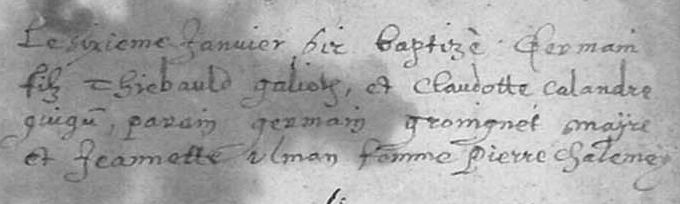 Le sixieme Janvier fut baptizè Germain
filz Thiebauld galiotz, et Claudotte calandre
parain germain groingnet majre
et Jeannette ulman femme pierre chatemey